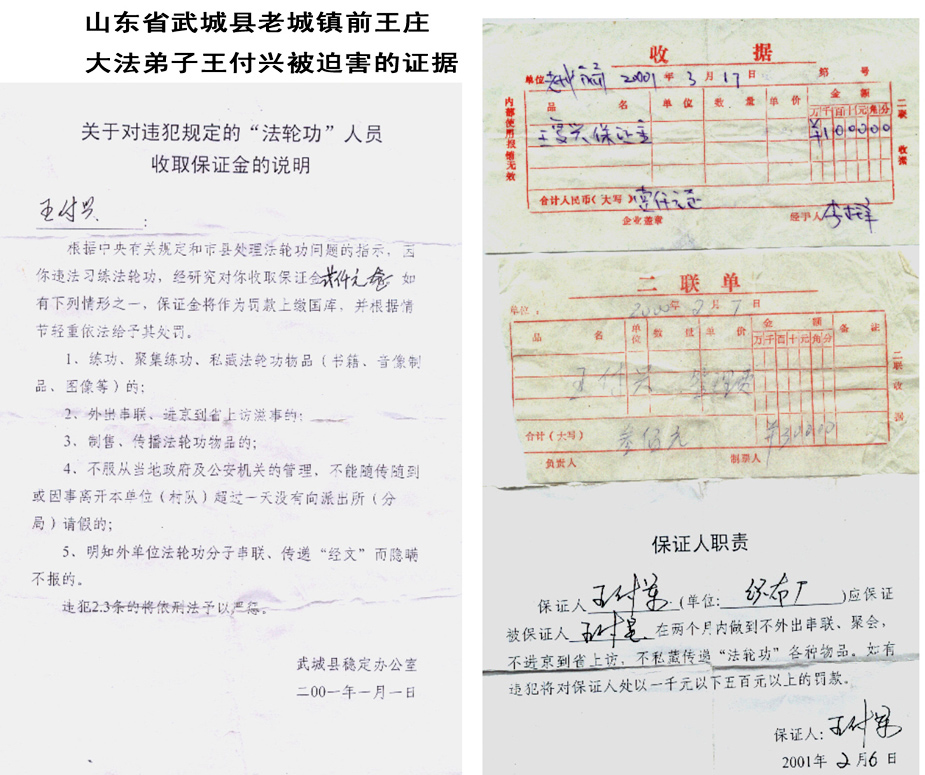 山东省武城县老城镇前王庄
大法弟子王付兴被迫害的证据
关于对违犯规定的“法轮功”人员
收取保证金的说明
王付兴：
根据中央有关规定和市县处理法轮功问题的指示，因
你违法习练法轮功，经研究对你收取保证金 如
有下列情形之一，保证金将作为罚款上缴国库，并根据情
节轻重依法给予其处罚。
1、练功、聚集练功、私藏法轮功物品（书籍、音像制
品、图像等）的；
2、外出串联、进京到省上访滋事的；
3、制售、传播法轮功物品的；
4、不服从当地政府及公安机关的管理，不能随传随到
或因事离开本单位（村队）超过一天没有向派出所（分
局）请假的；
5、明知外单位法轮功分子串联、传递“经文”而隐瞒
不报的。
违犯2.3条的将依刑法予以严惩。
武城县稳定办公室
二00一年一月一日
收 据
单位 2001年3月17日 第 号
品 名 单位 数量 单价 金额
万千百十元角分
保证金 ¥100000
合计人民币（大写）壹仟元
企业盖章 经手人
内部使用报销无效
二联 收据
二联单
单位： 2000年2月7日
品 名 单位 数量 单价 金额 备注
万千百十元角分
王付兴 管理费
合计（大写）叁佰元
负责人 制票人
二联收据
保证人职责
保证人 (单位: 织布厂)应保证
被保证人 在两个月内做到不外出串联、聚会，
不进京到省上访，不私藏传递“法轮功”各种物品。如有
违犯将对保证人处以一千元以下五百元以上的罚款。
保证人：
2001年2月6日